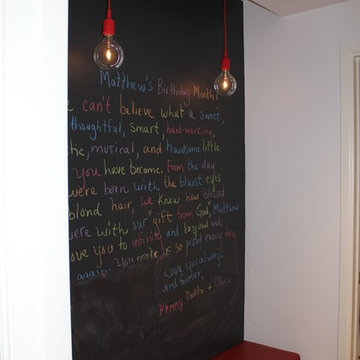 Matthew's Birthday Month!
can't believe what a sweet,
thoughtful, smart, hard-working,
tic, musical, and handsome little
you have become. From the day
were born with the bluest eyes
blond hair, we knew how blessed
were with our "gift from God," Matthew
ove you to infinity and beyond and
again. You make us so proud every day.
Love you always
and forever,
Mommy Daddy + Olivia